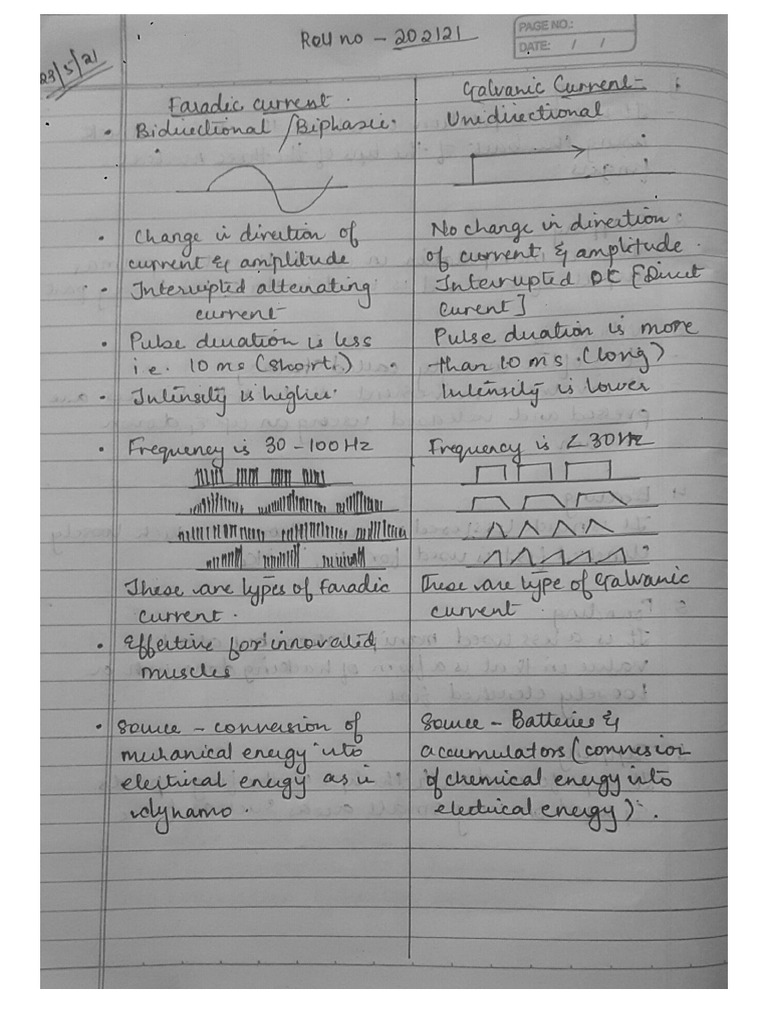 Roll no - 202121
PAGE NO.:
DATE: / /
23/5/21
Faradic current.
• Bidirectional / Biphasic.
• Change in direction of
current & amplitude
• Interrupted alternating
current
• Pulse duration is less
i.e. 10 ms (short.)
• Intensity is higher.
• Frequency is 30 - 100 Hz
These are types of faradic
current.
• Effective for innovated
muscles
• Source - conversion of
mechanical energy into
electrical energy as in
dynamo.
Galvanic Current -
Unidirectional
No change in direction
of current & amplitude.
Interrupted DC [Direct
Current]
Pulse duation is more
than 10 ms. (long)
Intensity is lower
Frequency is < 30 Hz
These are type of Galvanic
current.
Source - Batteries &
accumulators (conversion
of chemical energy into
electrical energy).